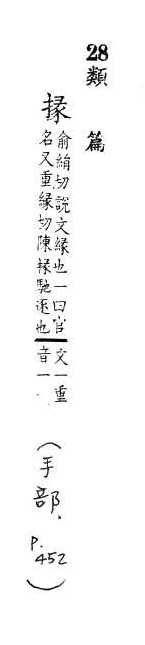 28 類篇
掾 俞絹切說文緣也一曰官
名又重緣切陳掾馳逐也
文一重
音一
(手部. p. 452)